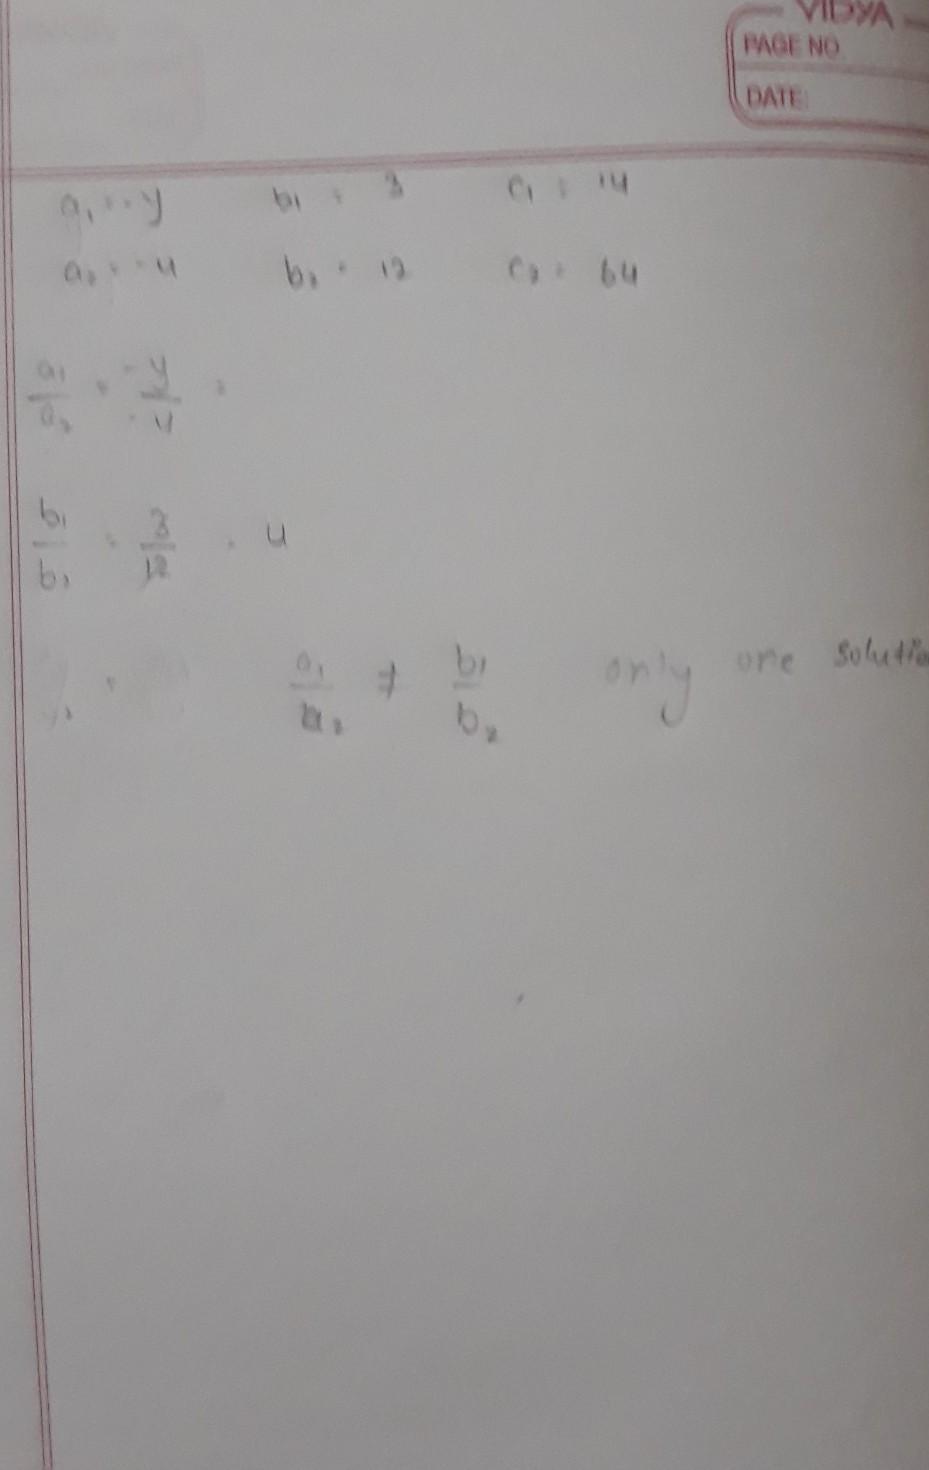 VIDYA
PAGE NO.
DATE:
a₁ = -y b₁ = 3 c₁ = 14
a₂ = -4 b₂ = 12 c₂ = 64
a₁/a₂ = -y/-4 =
b₁/b₂ = 3/12 = 4
a₁/a₂ ≠ b₁/b₂ only one solutio